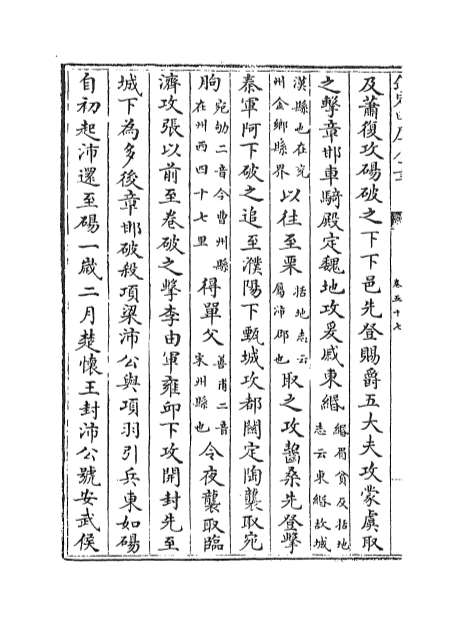 卷五十七
及蕭復攻碭破之下下邑先登賜爵五大夫攻蒙虞取
之擊章邯車騎殿定魏地攻爰戚東緡緡眉貧反括地志云東緡故城
漢縣也在兗州金鄉縣界以往至栗括地志云屬沛郡也取之攻齧桑先登擊
秦軍阿下破之追至濮陽下甄城攻都關定陶襲取宛
朐宛劬二音今曹州縣在州西四十七里得單父善甫二音宋州縣也令夜襲取臨
濟攻張以前至卷破之擊李由軍雍邱下攻開封先至
城下為多後章邯破殺項梁沛公與項羽引兵東如碭
自初起沛還至碭一歲二月楚懷王封沛公號安武侯